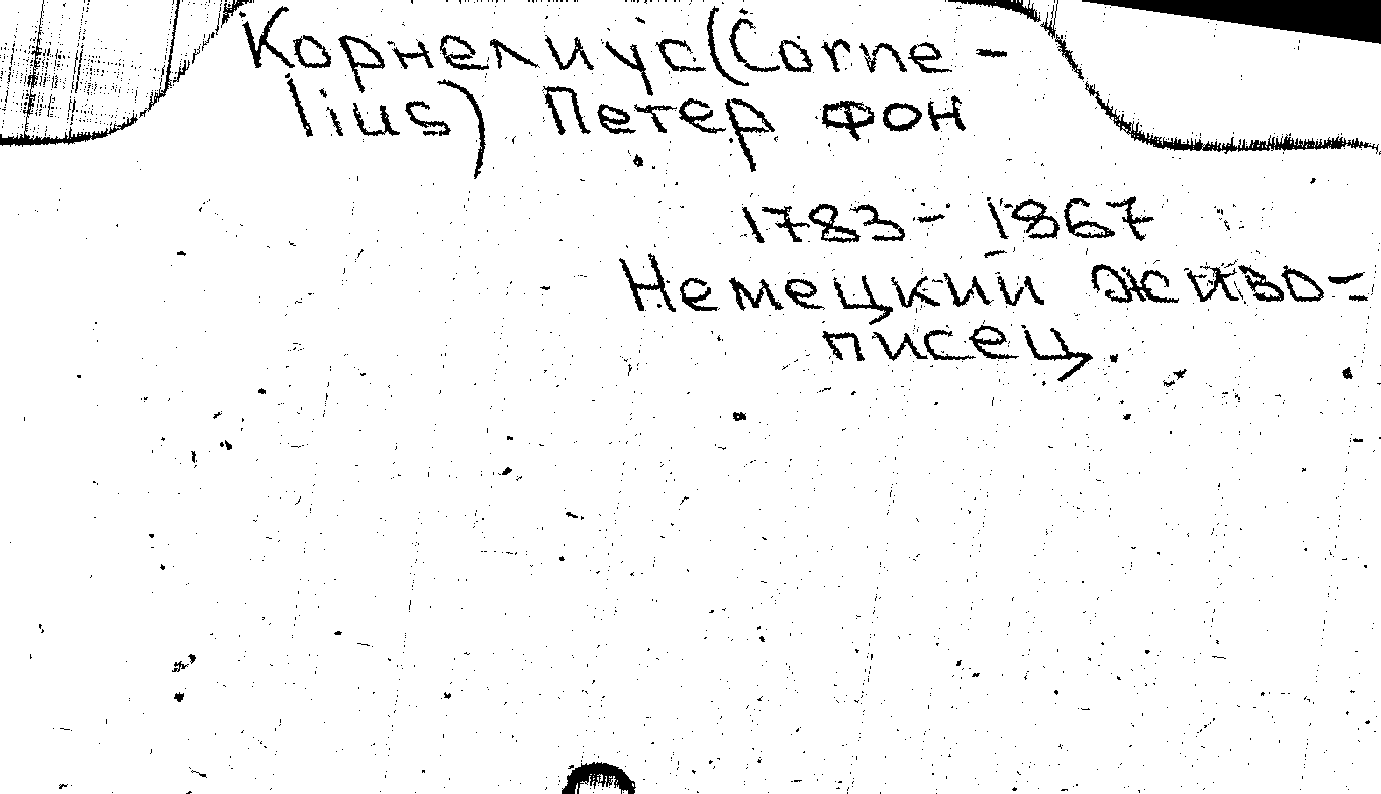 Корнелиус (Corne-
lius) Петер фон
1783-1867
Немецкий живо-
писец.